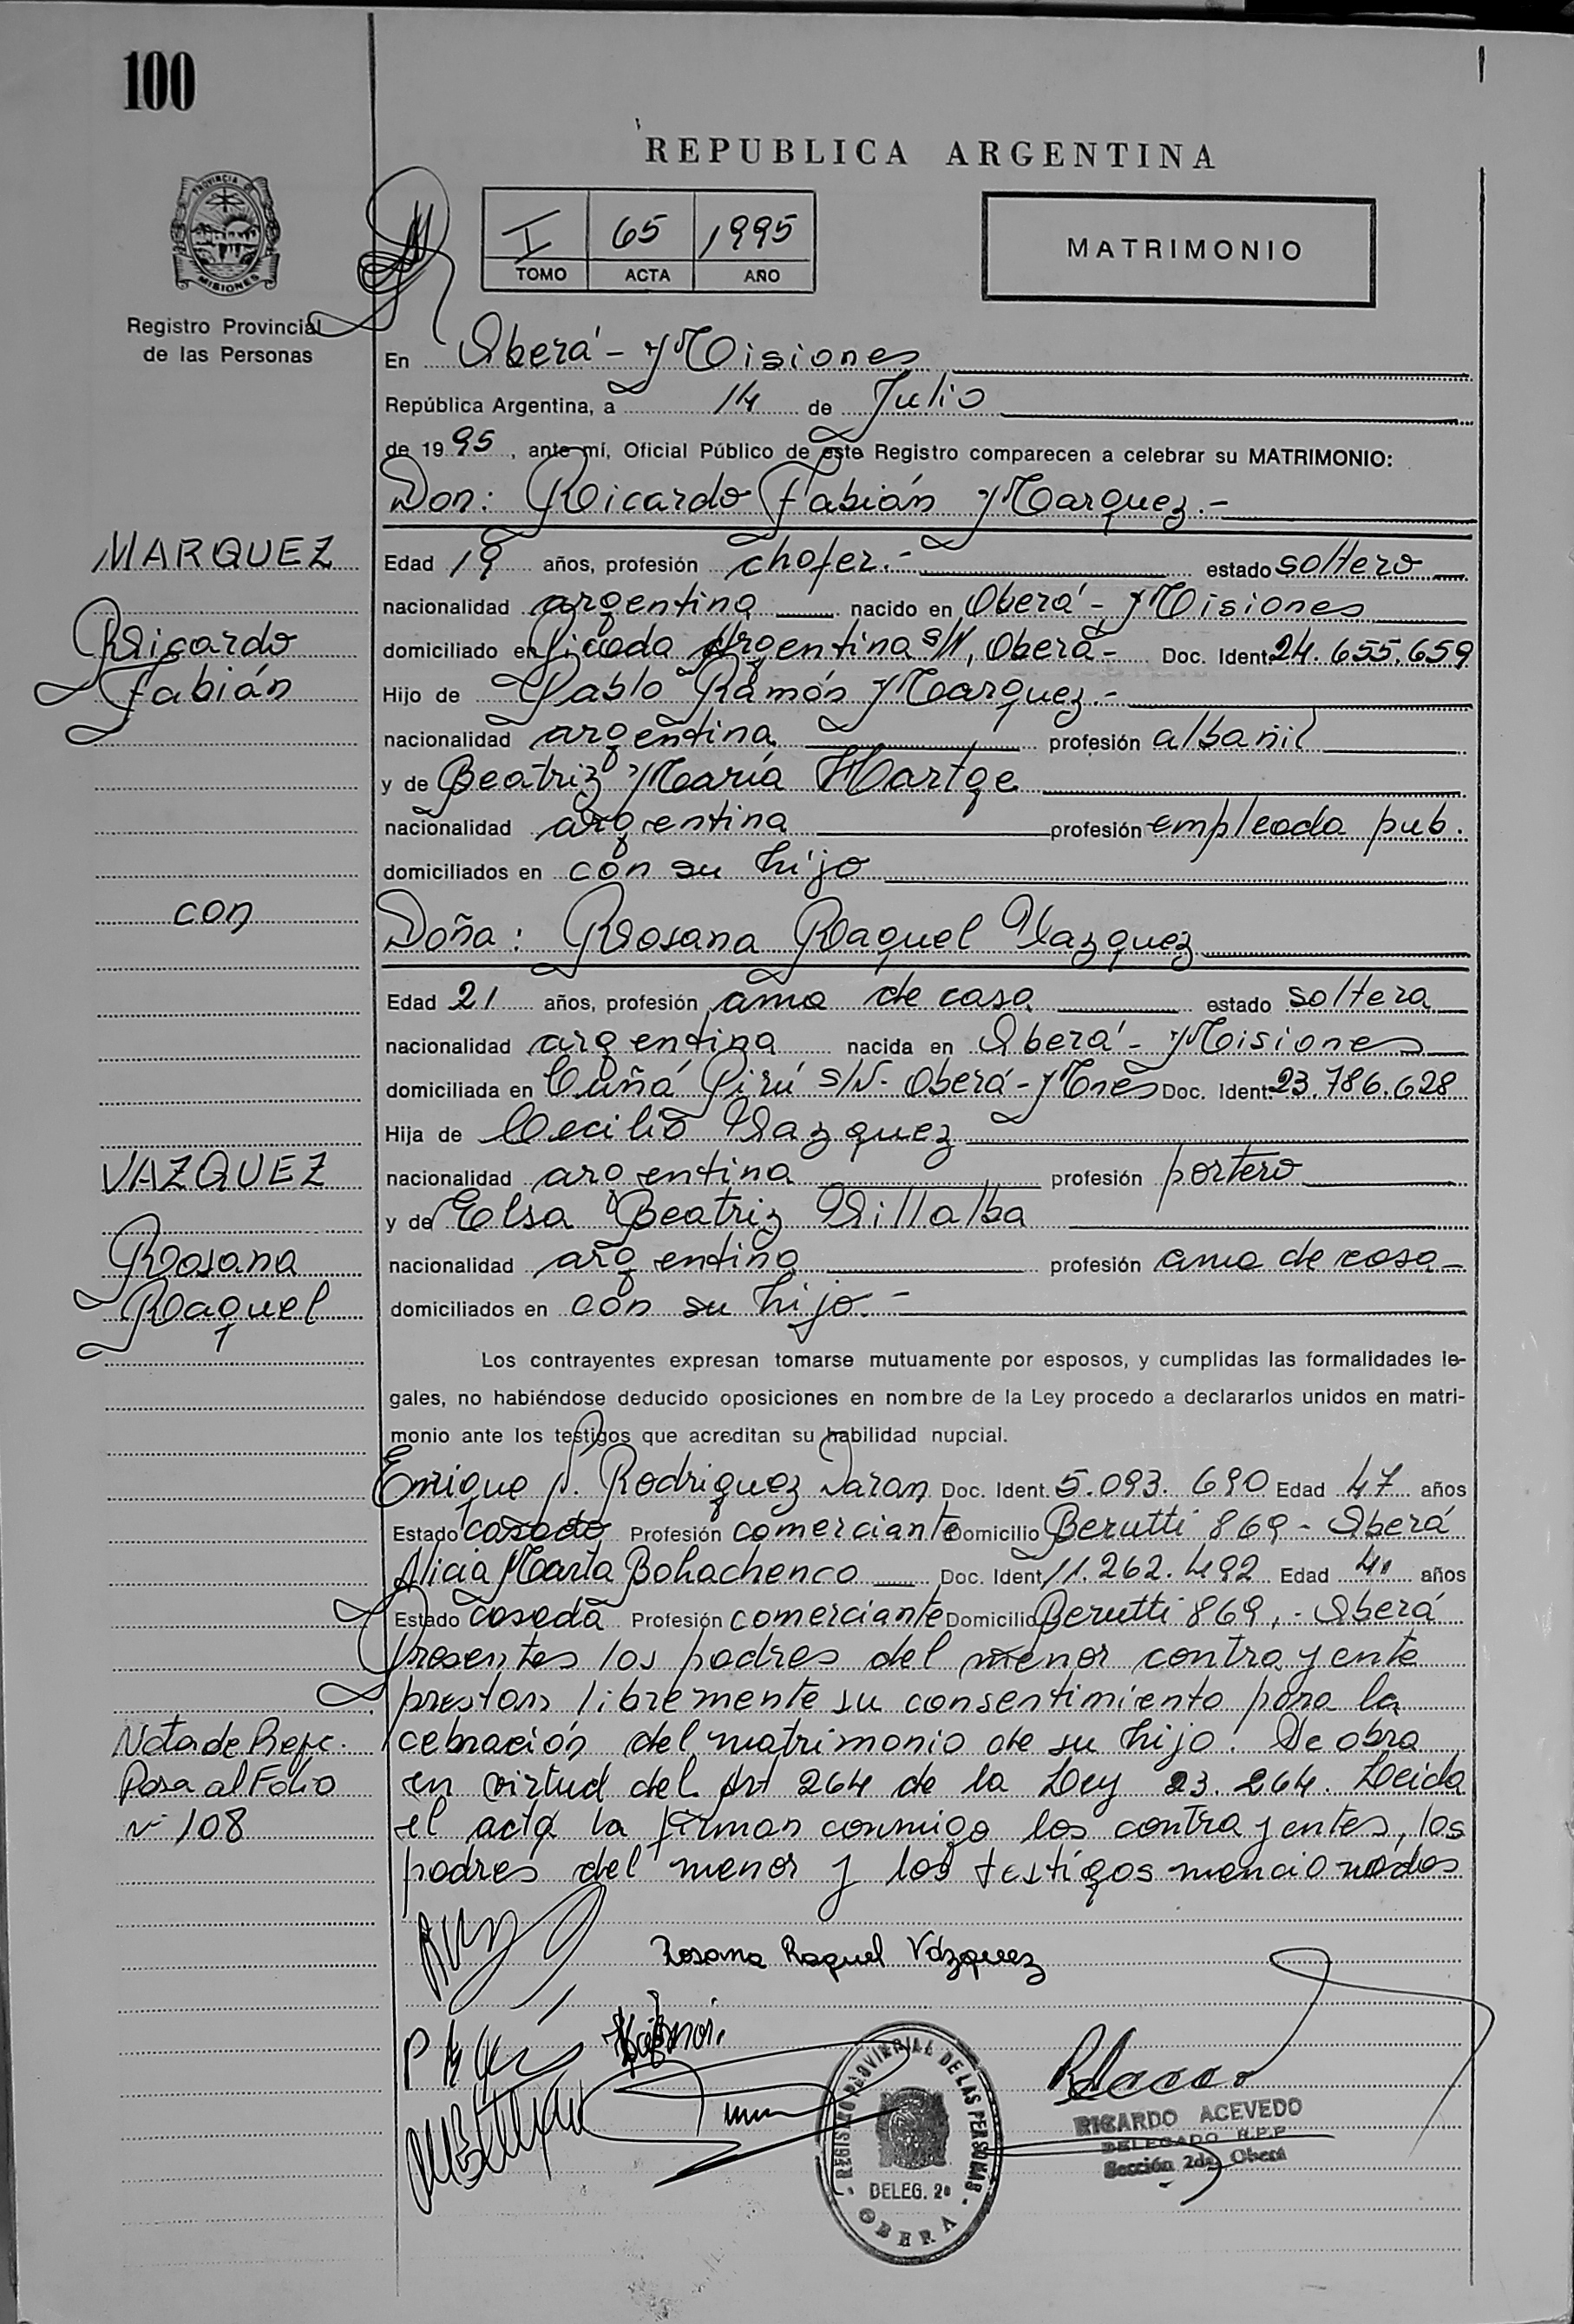 100
REPUBLICA ARGENTINA
PROVINCIA DE MISIONES
Registro Provincial
de las Personas
I 65 1995
TOMO ACTA AÑO
MATRIMONIO
En Oberá - Misiones
República Argentina, a 14 de Julio
de 1995, ante mí, Oficial Público de este Registro comparecen a celebrar su MATRIMONIO:
Don: Ricardo Fabián Marquez.-
MARQUEZ
Ricardo
Fabián
Edad 19 años, profesión chofer.- estado soltero
nacionalidad argentina nacido en Oberá - Misiones
domiciliado en Picada Argentina s/N, Oberá - Doc. Ident. 24.655.659
Hijo de Pablo Ramón Marquez.-
nacionalidad argentina profesión albañil
y de Beatriz María Hartge
nacionalidad argentina profesión empleada pub.
domiciliados en con su hijo
con
Doña: Rosana Raquel Vazquez
Edad 21 años, profesión ama de casa estado soltera
nacionalidad argentina nacida en Oberá - Misiones
domiciliada en Cuñá Pirú s/N - Oberá - Mnes Doc. Ident. 23.786.628
Hija de Cecilio Vazquez
VAZQUEZ
Rosana
Raquel
nacionalidad argentina profesión portero
y de Elsa Beatriz Villalba
nacionalidad argentina profesión ama de casa
domiciliados en con su hijo.-
Los contrayentes expresan tomarse mutuamente por esposos, y cumplidas las formalidades le-
gales, no habiéndose deducido oposiciones en nombre de la Ley procedo a declararlos unidos en matri-
monio ante los testigos que acreditan su habilidad nupcial.
Enrique Rodriguez Daran Doc. Ident. 5.093.690 Edad 47 años
Estado casado Profesión comerciante Domicilio Berutti 869 - Oberá
Alicia Marta Bohachenco Doc. Ident. 11.262.492 Edad 41 años
Estado casada Profesión comerciante Domicilio Berutti 869, - Oberá
presentes los padres del menor contrayente
prestan libremente su consentimiento para la
cebración del matrimonio de su hijo. Se obra
en virtud del Art 264 de la Ley 23.264. Leida
el acta la firman conmigo los contrayentes, los
padres del menor y los testigos mencionados
Nota de Refe.
Pasa al Folio
Nº 108
Rosana Raquel Vázquez
REGISTRO PROVINCIAL DE LAS PERSONAS
DELEG. 2ª
OBERA
RICARDO ACEVEDO
DELEGADO R.P.P.
Sección 2da. Oberá